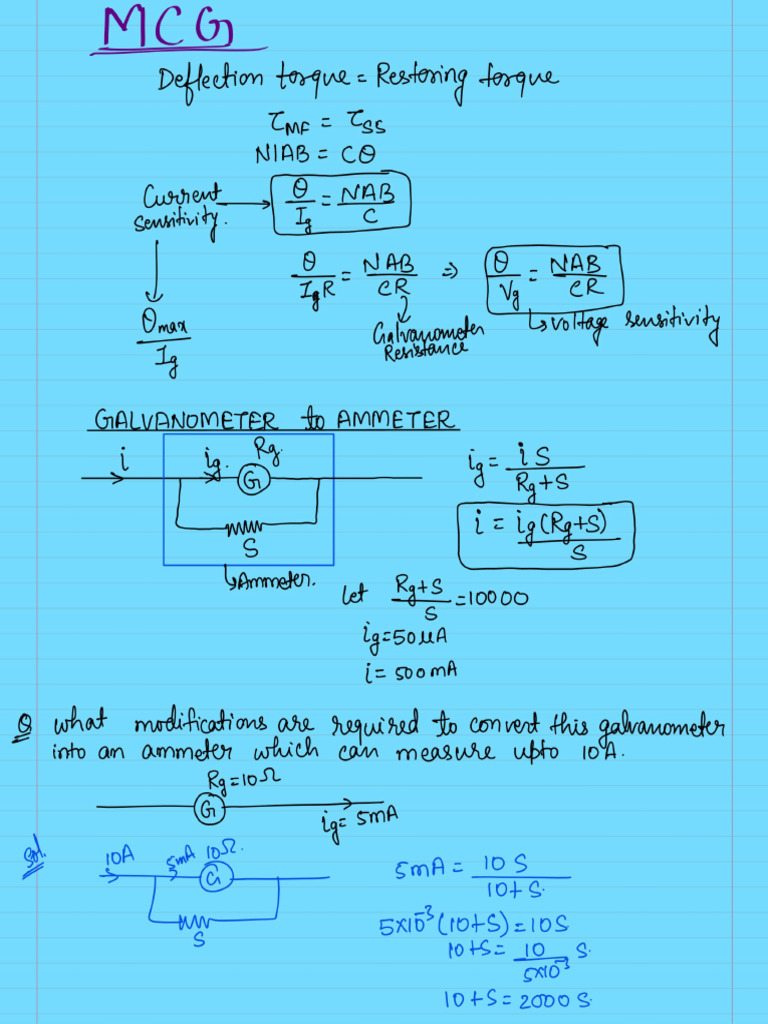 MCG
Deflection torque = Restoring torque
τ_MF = τ_SS
NIAB = Cθ
Current sensitivity. → θ/I_g = NAB/C
θ/(I_g R) = NAB/(CR) ⇒ θ/V_g = NAB/(CR)
θmax/I_g
Galvanometer Resistance
↳ voltage sensitivity
GALVANOMETER to AMMETER
i
i_g.
R_g.
G
S
↳ Ammeter.
i_g = i S/(R_g+S)
i = i_g(R_g+S)/S
let (R_g+S)/S = 10000
i_g = 50 μA
i = 500 mA
Q what modifications are required to convert this galvanometer
into an ammeter which can measure upto 10A.
R_g = 10Ω
G
i_g = 5mA
Sol.
10A
5mA
10Ω.
G
S
5mA = 10 S/(10+S.)
5×10^-3 (10+S) = 10S
10+S = 10/(5×10^-3) S.
10+S = 2000 S.